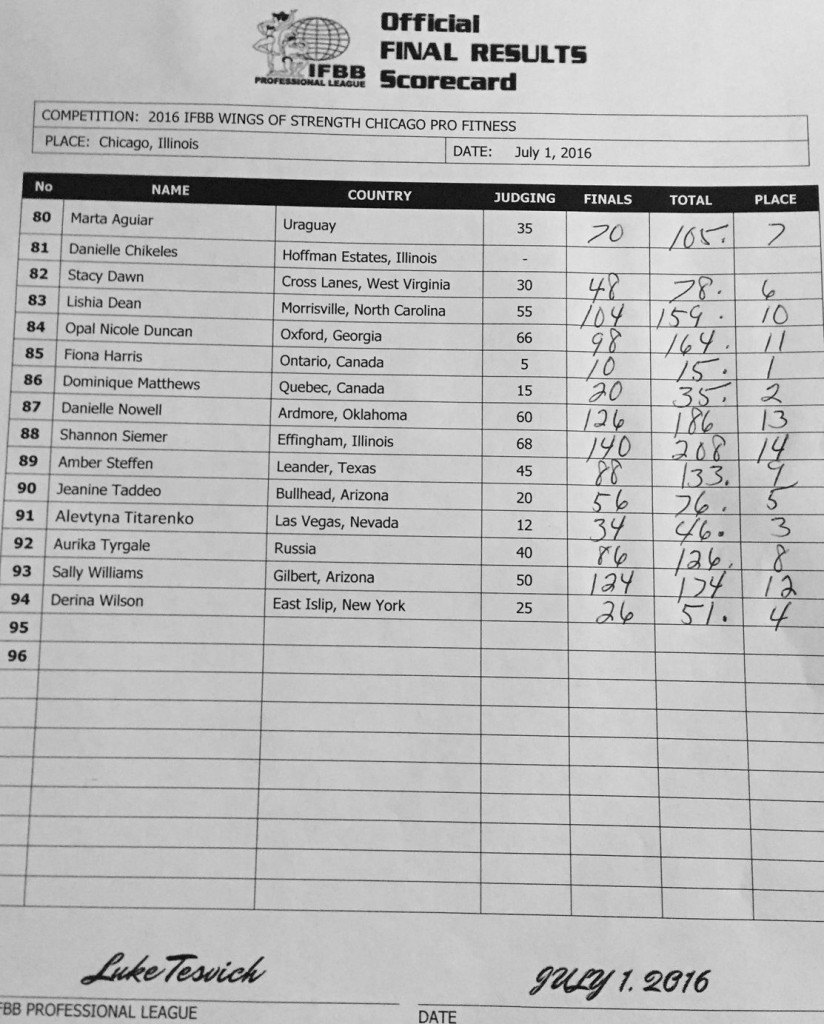 Official
FINAL RESULTS
Scorecard
IFBB
PROFESSIONAL LEAGUE
COMPETITION: 2016 IFBB WINGS OF STRENGTH CHICAGO PRO FITNESS
PLACE: Chicago, Illinois DATE: July 1, 2016
No NAME COUNTRY JUDGING FINALS TOTAL PLACE
80 Marta Aguiar Uraguay 35 70 105. 7
81 Danielle Chikeles Hoffman Estates, Illinois -
82 Stacy Dawn Cross Lanes, West Virginia 30 48 78. 6
83 Lishia Dean Morrisville, North Carolina 55 104 159. 10
84 Opal Nicole Duncan Oxford, Georgia 66 98 164. 11
85 Fiona Harris Ontario, Canada 5 10 15. 1
86 Dominique Matthews Quebec, Canada 15 20 35. 2
87 Danielle Nowell Ardmore, Oklahoma 60 126 186 13
88 Shannon Siemer Effingham, Illinois 68 140 208 14
89 Amber Steffen Leander, Texas 45 88 133. 9
90 Jeanine Taddeo Bullhead, Arizona 20 56 76. 5
91 Alevtyna Titarenko Las Vegas, Nevada 12 34 46. 3
92 Aurika Tyrgale Russia 40 86 126. 8
93 Sally Williams Gilbert, Arizona 50 124 174 12
94 Derina Wilson East Islip, New York 25 26 51. 4
95
96
Luke Tesvich JULY 1. 2016
FBB PROFESSIONAL LEAGUE DATE